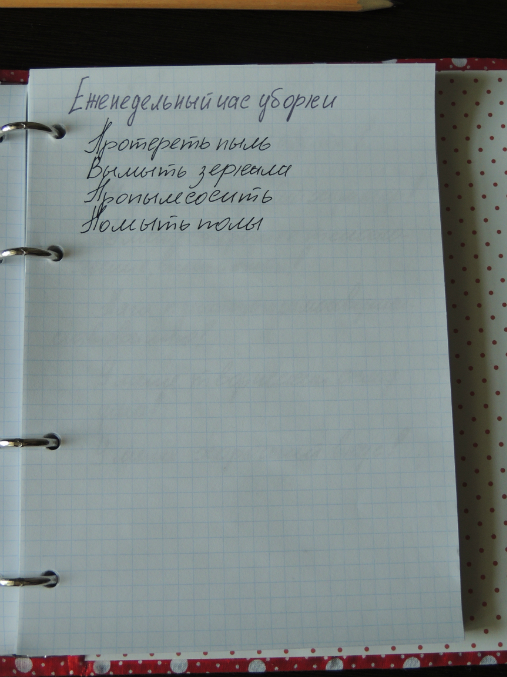 Еженедельный час уборки
Протереть пыль
Вымыть зеркала
Пропылесосить
Помыть полы